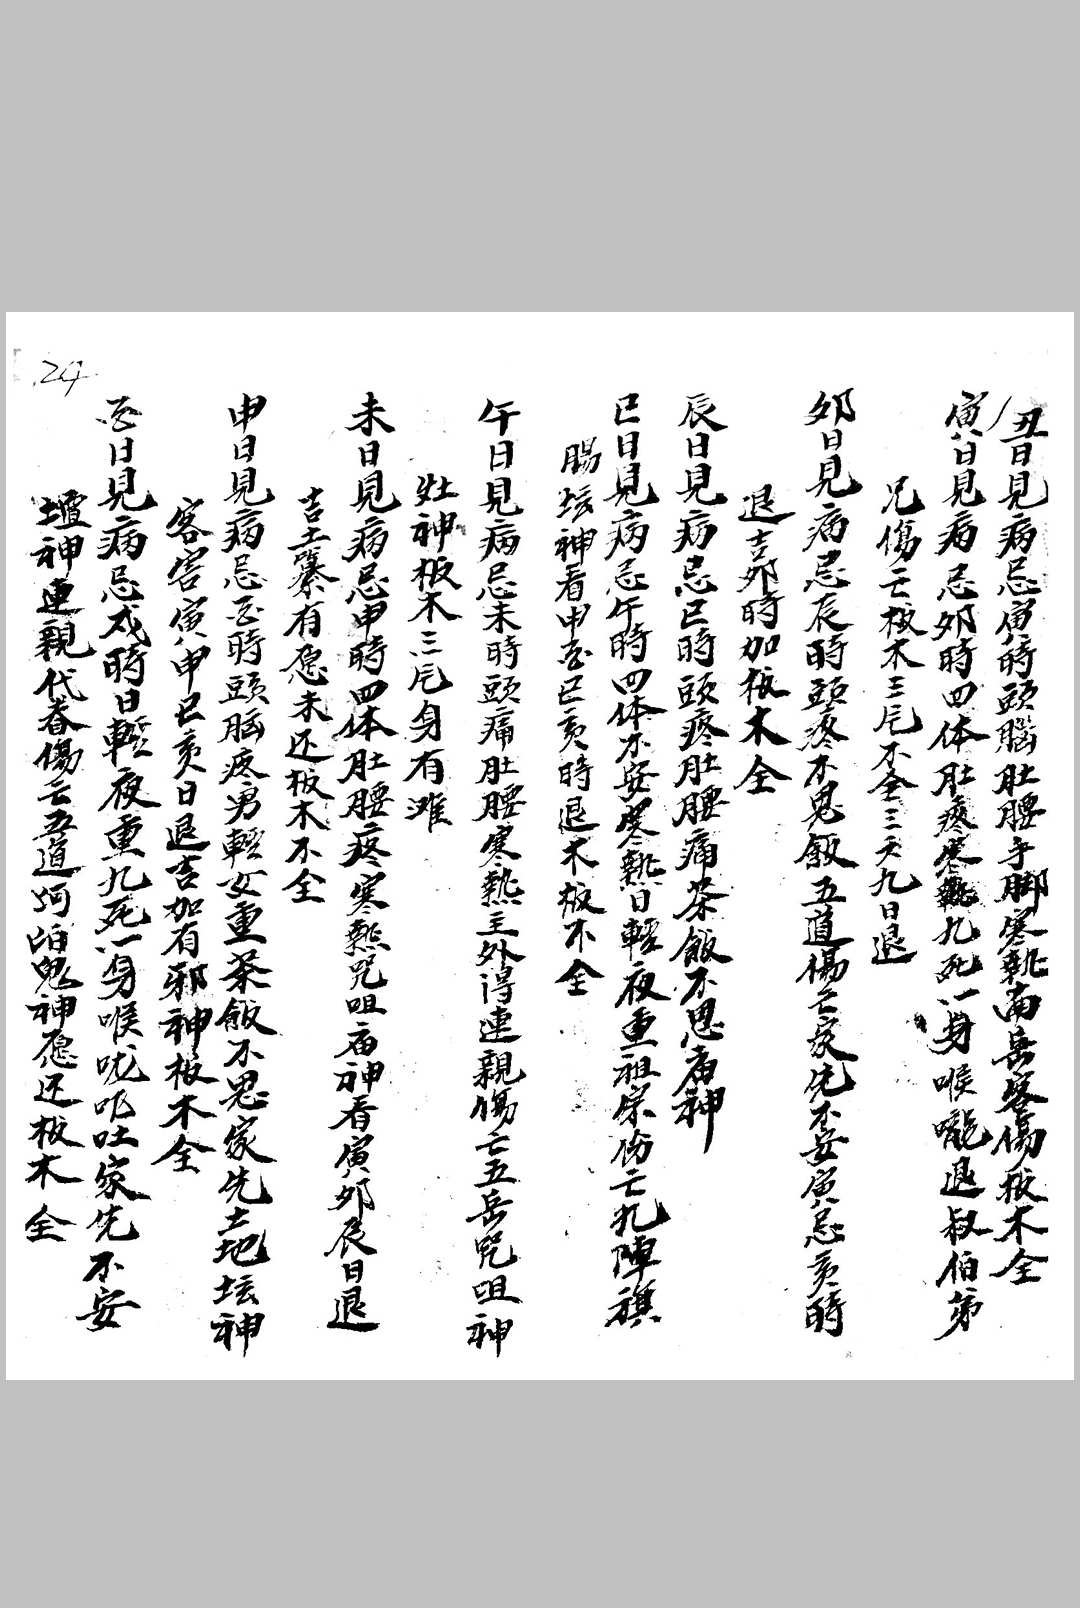 丑日見病忌寅時頭腦肚腰手脚寒熱南岳客傷板木全
寅日見病忌卯時四体肚疼寒熱九死一身喉嚨退叔伯弟
兄傷亡板木三片不全三天九日退
卯日見病忌辰時頭疼不思飯五道傷亡家先不安寅忌亥時
退吉卯時加板木全
辰日見病忌巳時頭疼肚腰痛茶飯不思庙神
巳日見病忌午時四体不安寒熱日輕夜重祖宗伤亡九陣旗
腸坛神看申酉巳亥時退木板不全
午日見病忌未時頭痛肚腰寒熱主外得連親傷亡五岳咒咀神
灶神板木三片身有难
未日見病忌申時四体肚腰疼寒熱咒咀庙神看寅卯辰日退
吉土纂有愿未还板木不全
申日見病忌酉時頭腦疼男輕女重茶飯不思家先土地坛神
客害寅申巳亥日退吉加有邪神板木全
酉日見病忌戌時日輕夜重九死一身喉咙呕吐家先不安
壇神連親代眷傷亡五道河泊鬼神愿还板木全
24